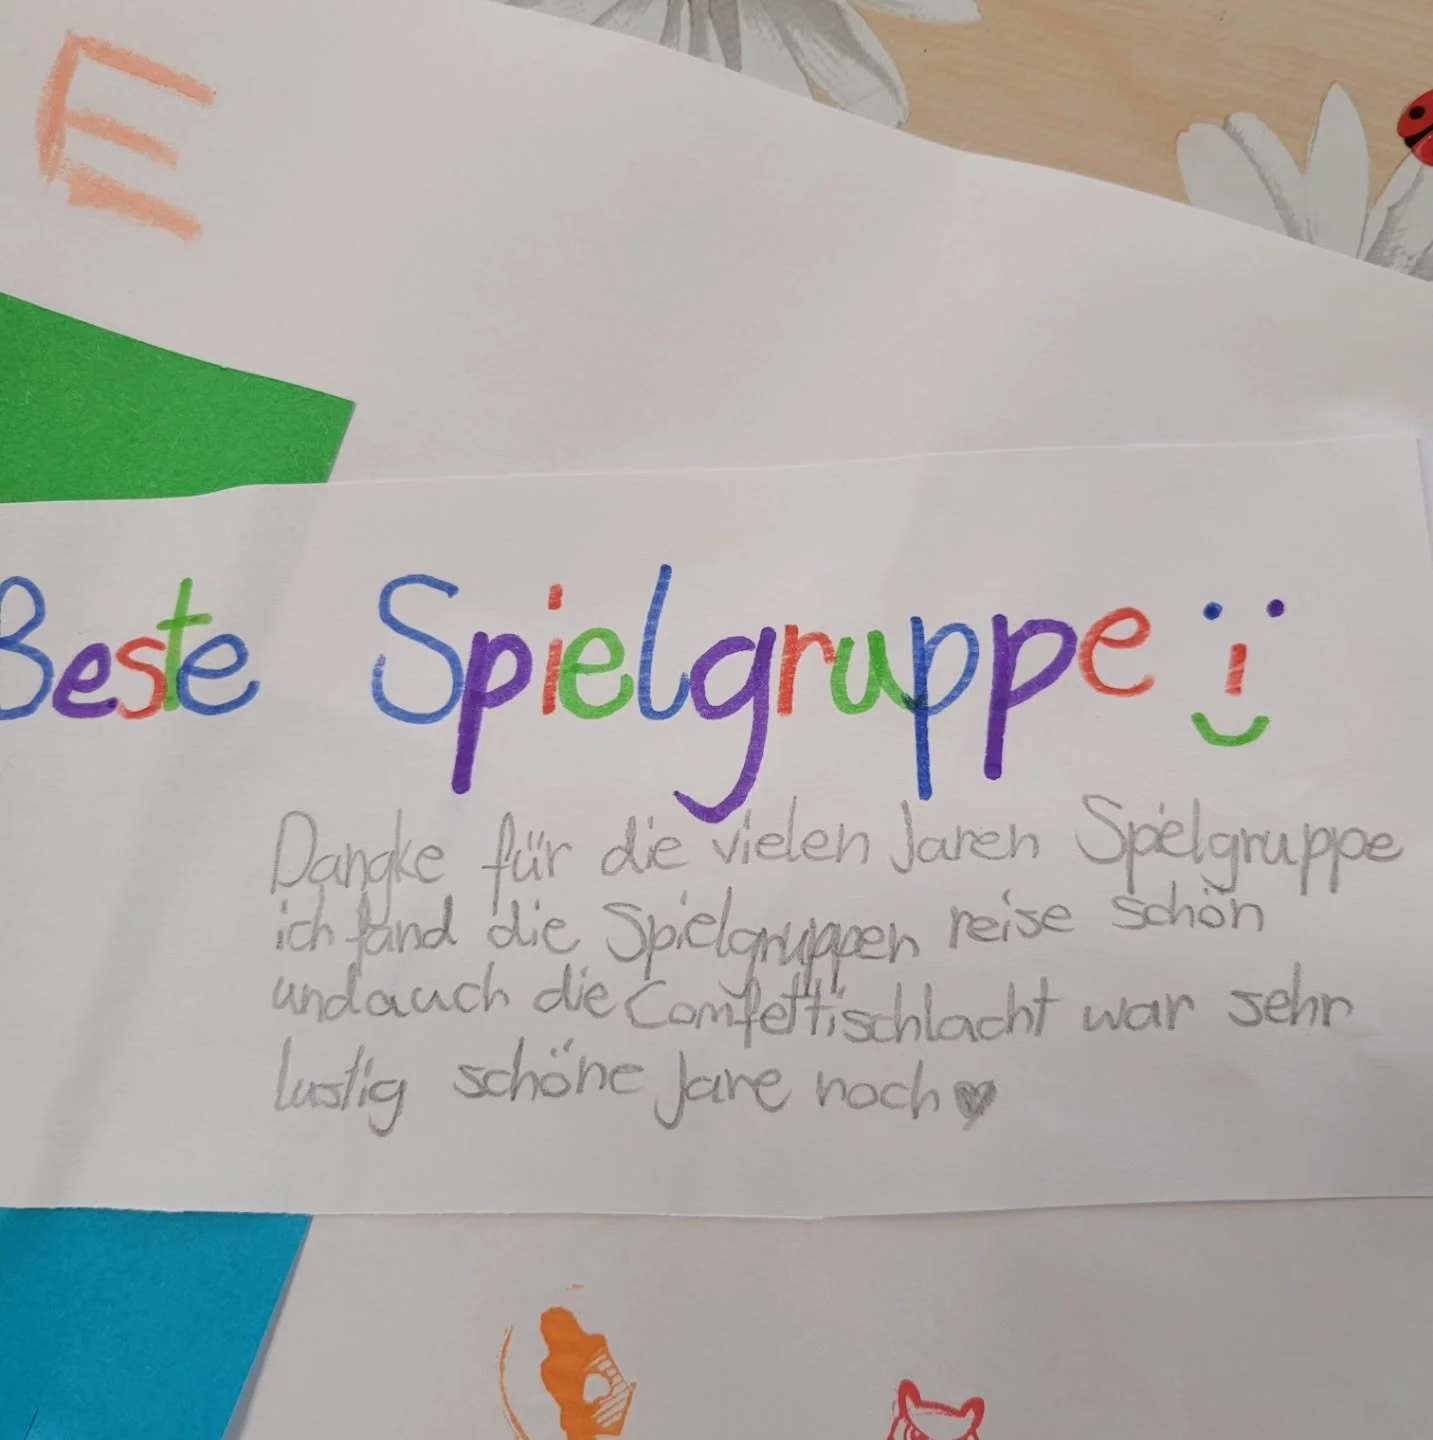 E
Beste Spielgruppe
Dangke für die vielen Jaren Spielgruppe
ich fand die Spielgruppen reise schön
und auch die Comfettischlacht war sehr
lustig schöne Jare noch ♥